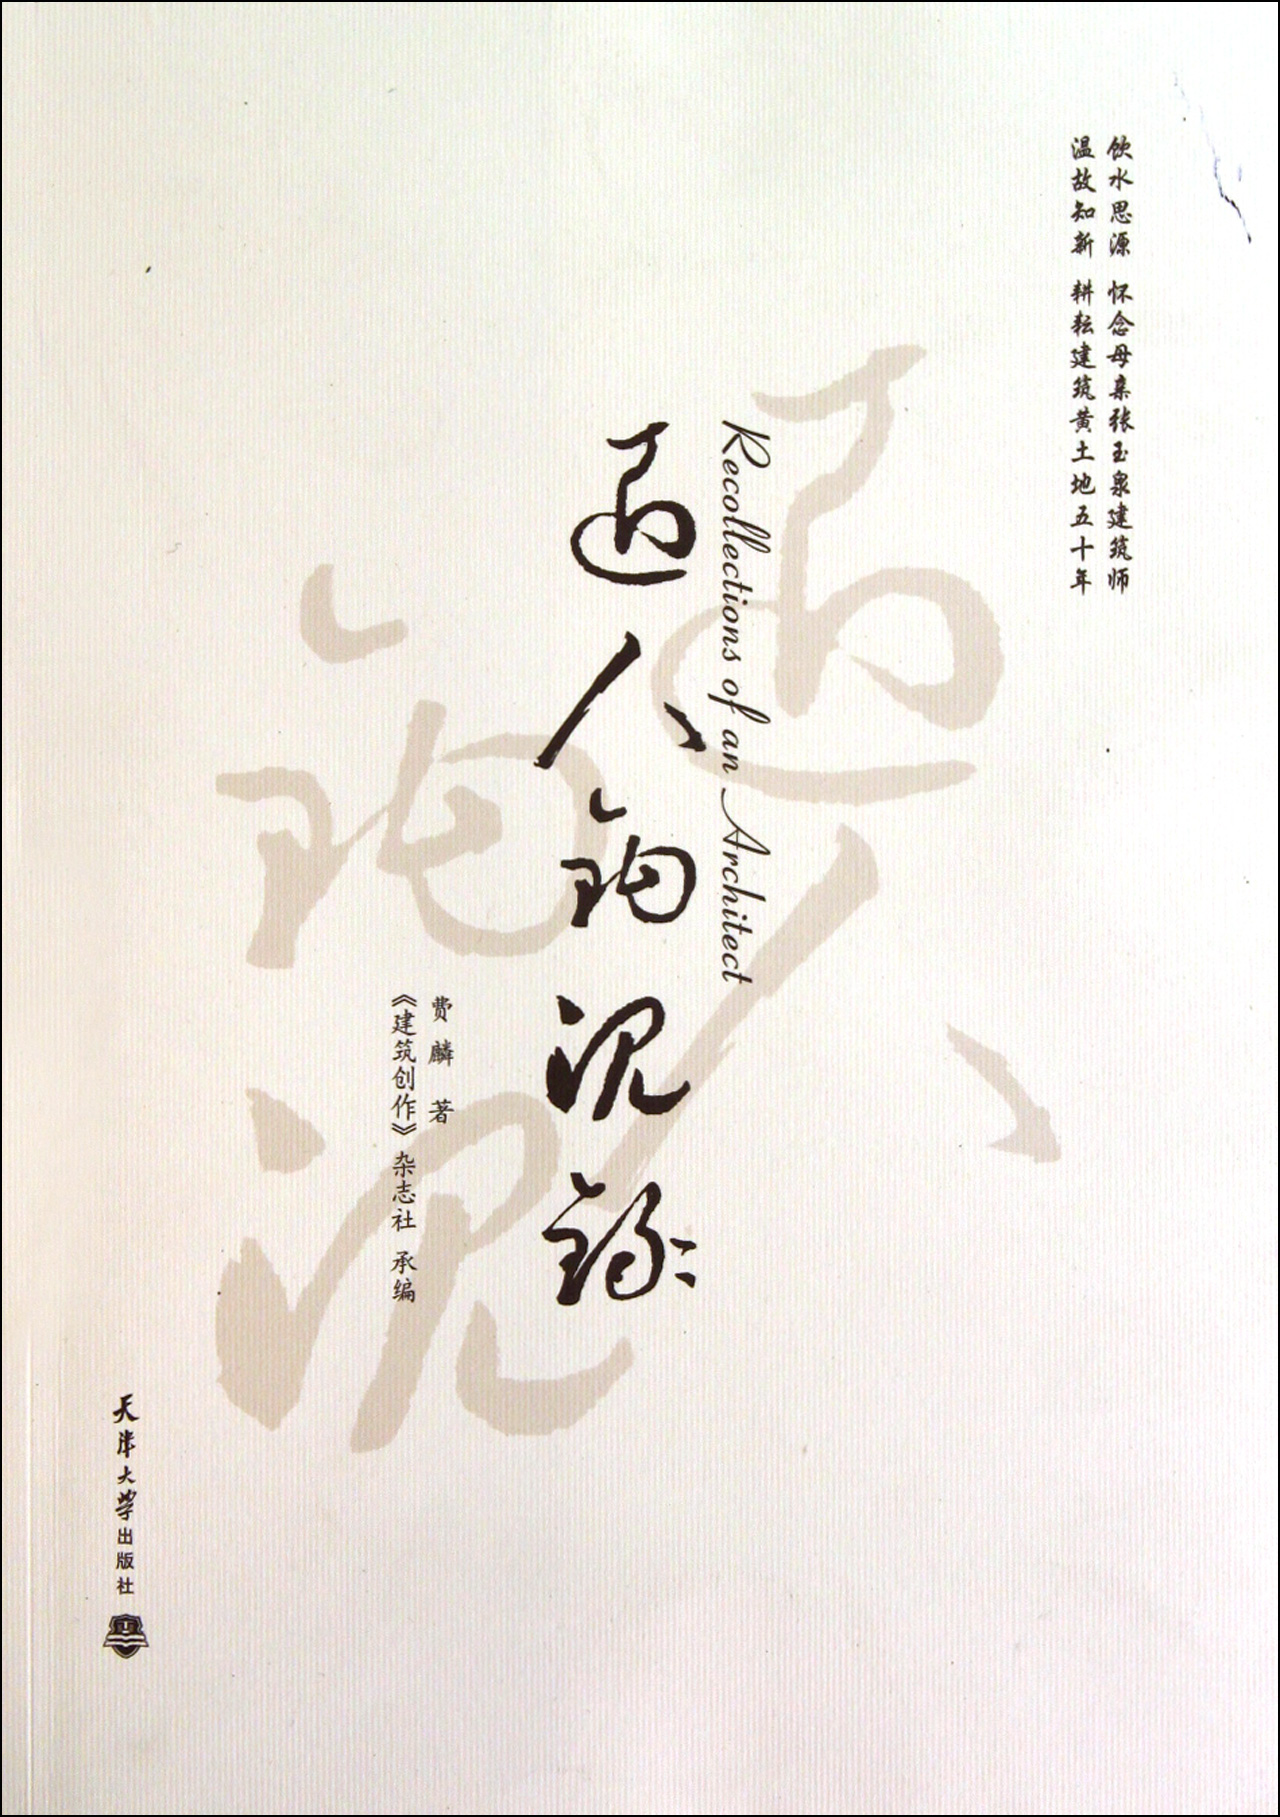 饮水思源 怀念母亲张玉泉建筑师
温故知新 耕耘建筑黄土地五十年
Recollections of an Architect
匠人钩沉录
费麟 著
《建筑创作》杂志社 承编
天津大学出版社
匠人
钩沉